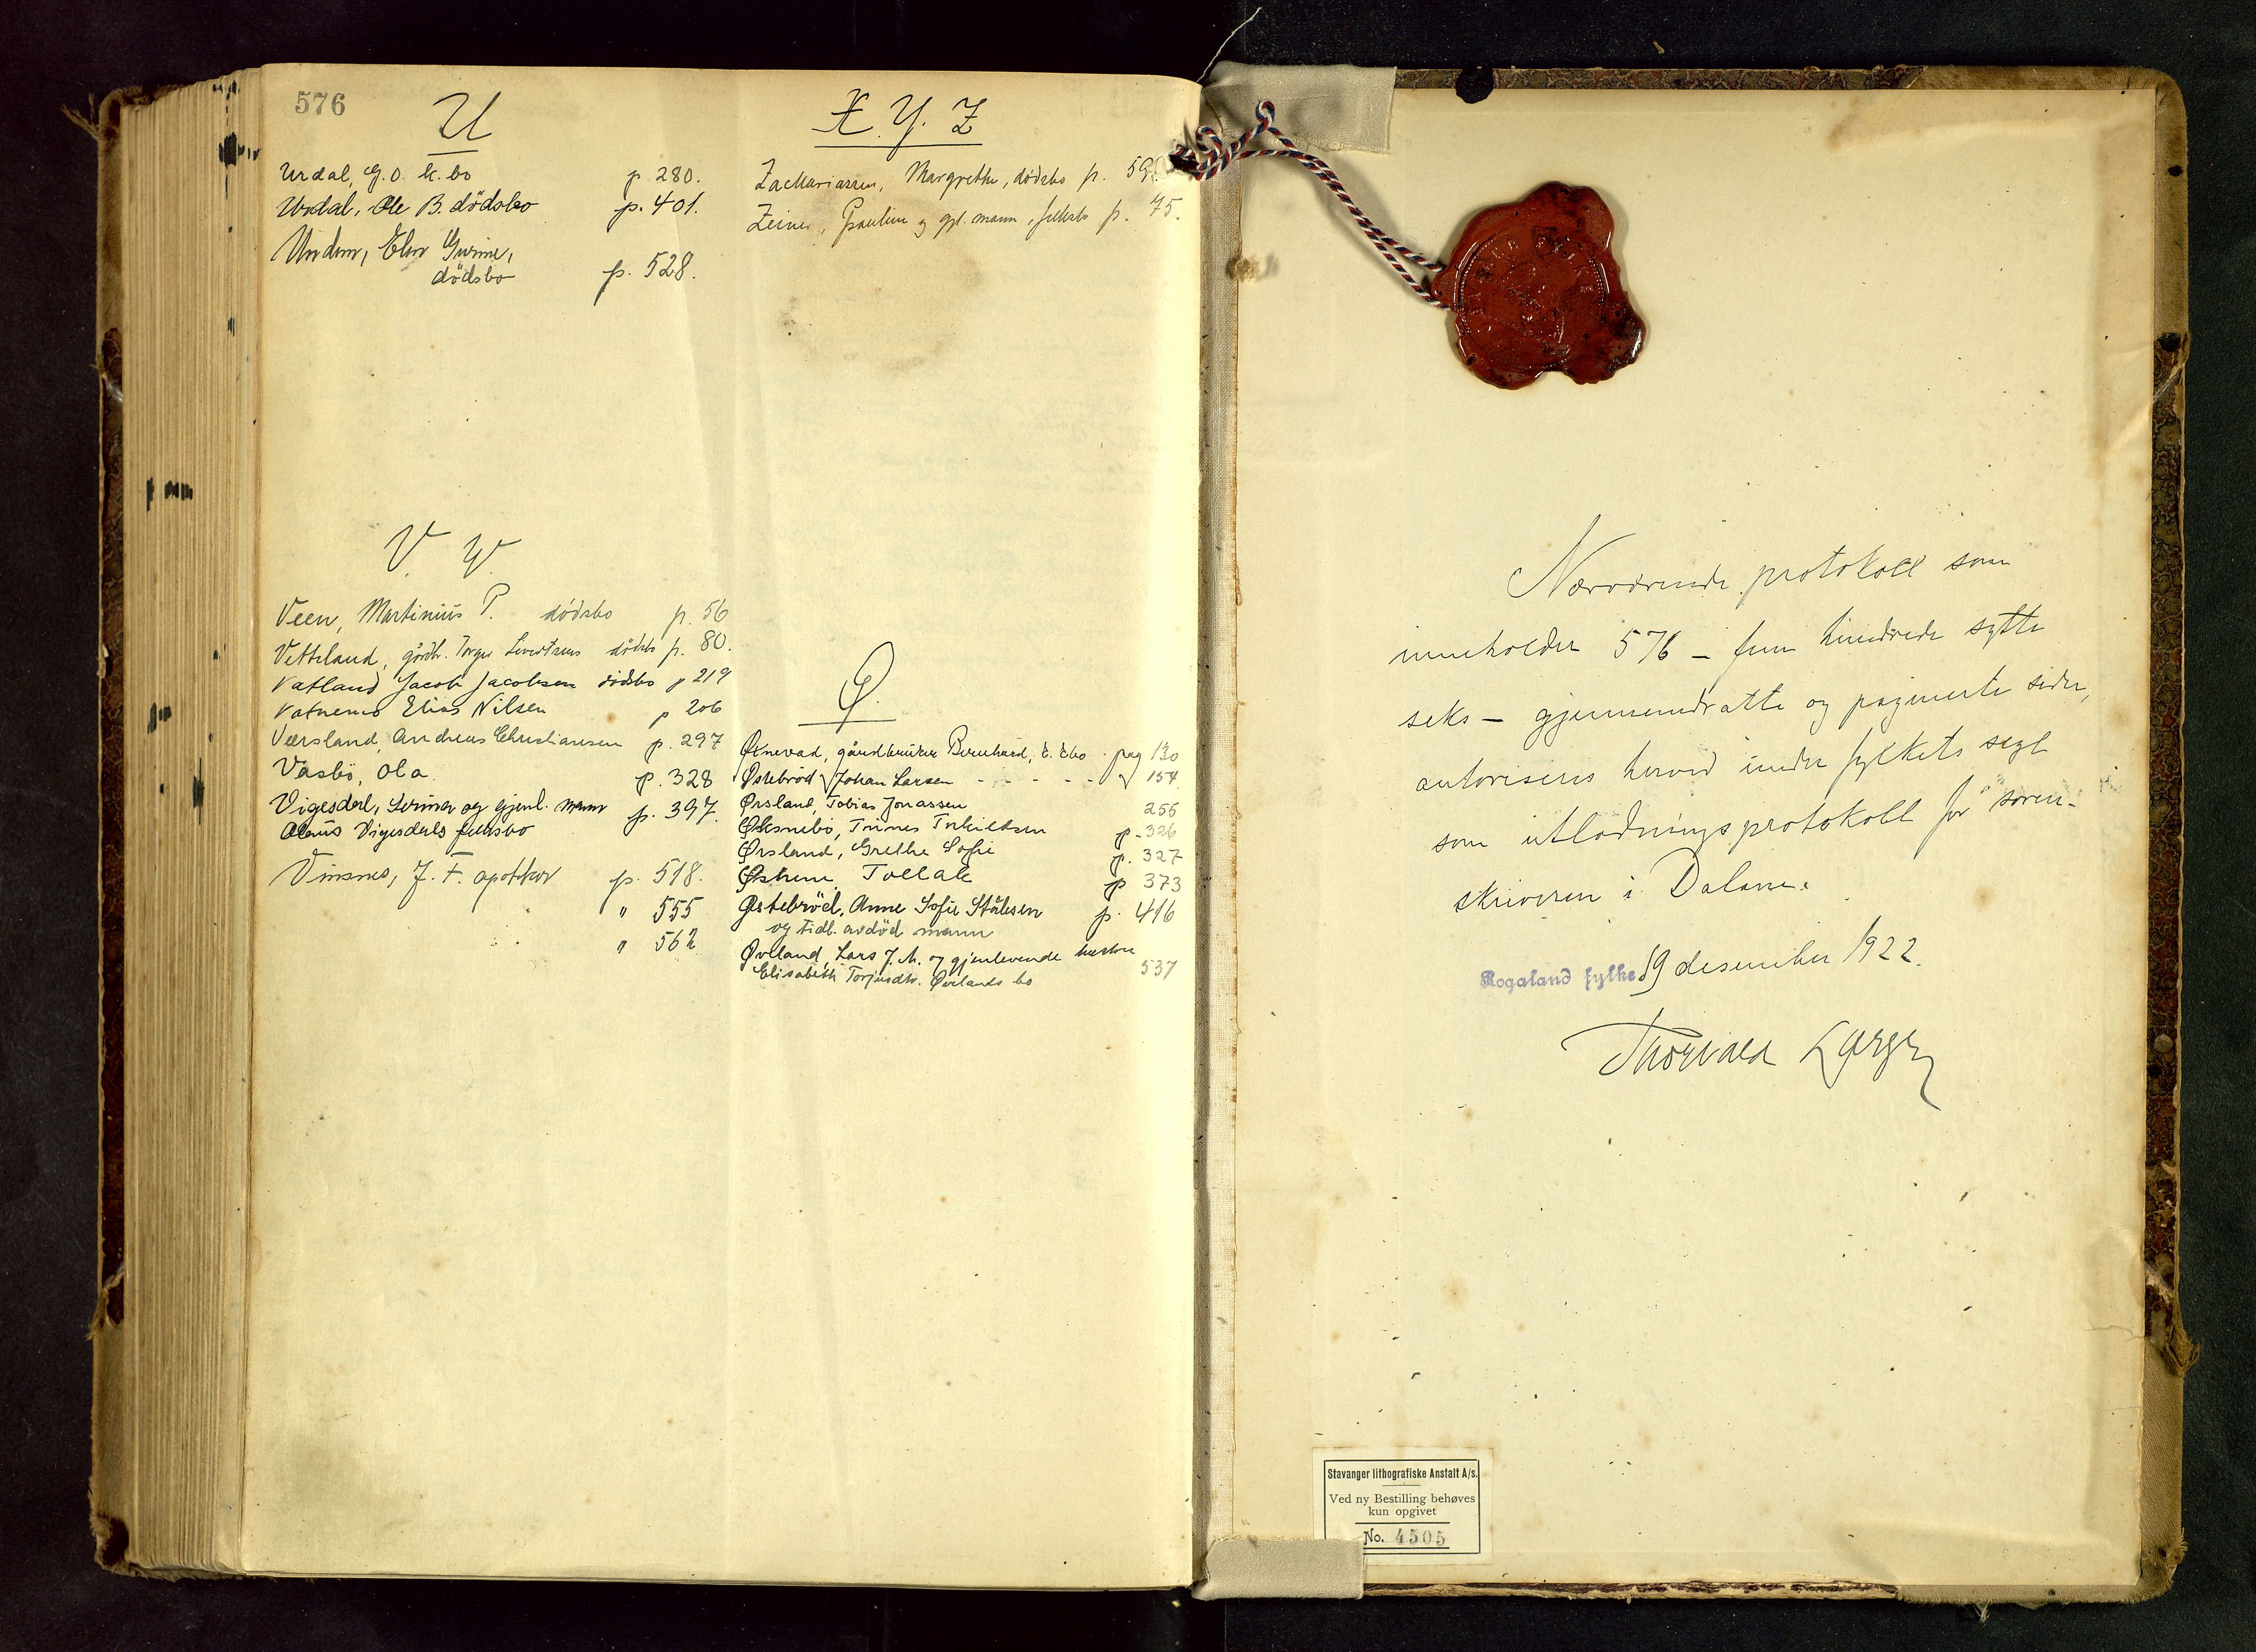 576
U
Urdal, G. O. k. bo p. 280.
Urdal, Ole B. dödsbo p. 401.
Undem, Elen Gurine,
dödsbo p. 528.
V W
Veen, Martinius P. dödsbo p. 56
Vetteland, gårdbr. Torger dödsbo p. 80.
Vatland Jacob Jacobsen dödsbo p 219
Vatnemo Elias Nilsen p 206
Veersland, Andreas Christiansen p. 297
Vasbö, Ola p. 328
Vigesdal, Serina og gjenl. mann p. 397.
Olaus Vigesdals fellesbo
Vinsnes, J. F. apotheker p. 518.
" 555
" 562
X. Y. Z
Zachariassen, Margrethe, dödsbo p.
Zeiner, Pauline og gjl. mann, fellesbo p. 75.
Ø.
Ørnevad, gårdbruker Bernhard, E. bo pag 130
Østebröd Johan Larsen - - - - - 154.
Ørsland, Tobias Jonassen 255
Øksnebö, Tönnes Torkildsen p. 326
Ørsland, Grethe Sofie p. 327
Østrem Tollak p 373
Østebröd, Anne Sofie Ståлesen p. 416
og tidl. avdöd mann
Øvland, Lars J. M. og gjenlevende hustru
Elisabeth Torjusdtr. Øvlands bo 537
Nærværende protokoll som
inneholder 576 - fem hundrede sytti
seks - gjennemdratte og paginerte sider,
autoriseres herved under fylkets segl
som utlodningsprotokoll for soren-
skriveren i Dalane.
Rogaland fylke 19 desember 1922.
Thorvald Larsen
Stavanger lithografiske Anstalt A/s.
Ved ny Bestilling behøves
kun opgivet
No. 4505